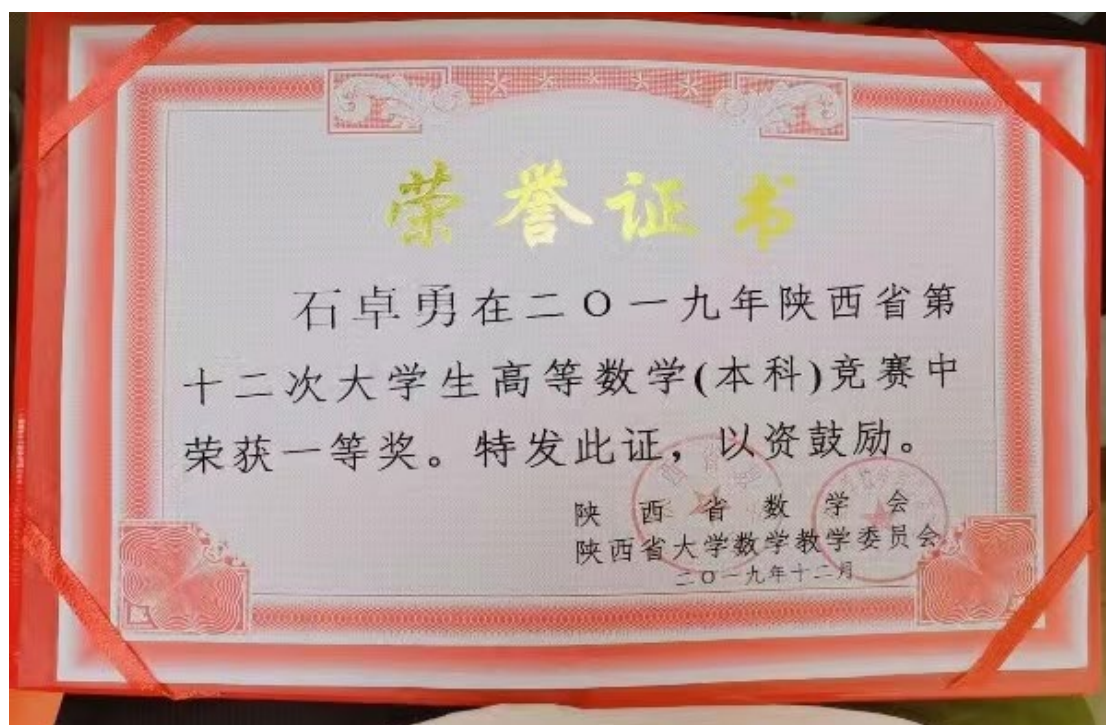 荣誉证书
石卓勇在二〇一九年陕西省第
十二次大学生高等数学(本科)竞赛中
荣获一等奖。特发此证，以资鼓励。
陕西省数学会
陕西省大学数学教学委员会
二〇一九年十二月